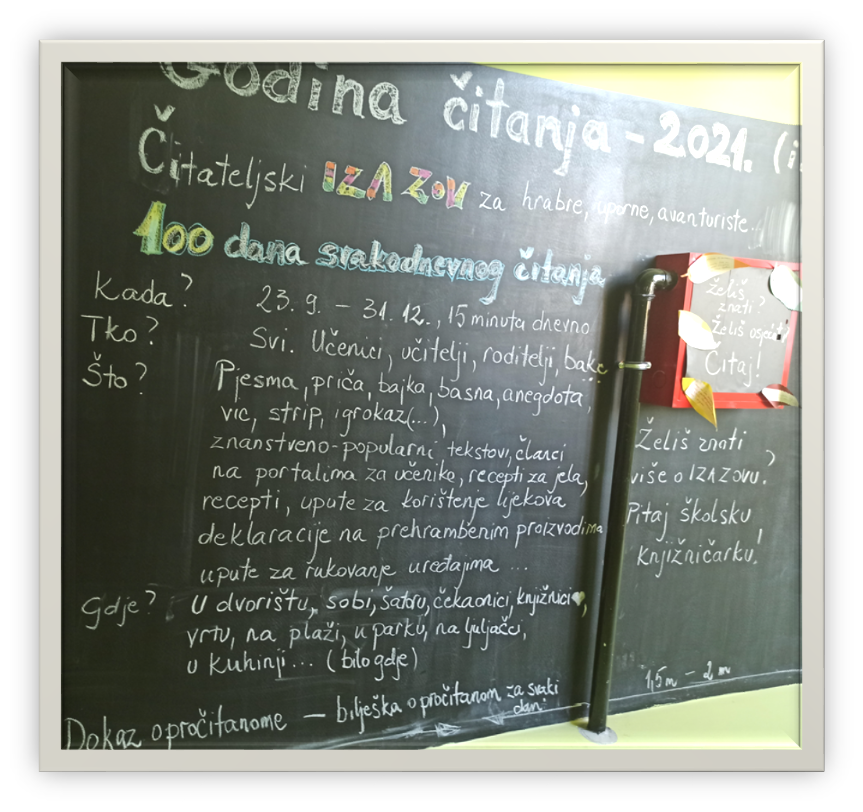 Godina čitanja - 2021. (i
Čitateljski IZAZOV za hrabre, uporne, avanturiste...
100 dana svakodnevnog čitanja
Kada? 23. 9. - 31. 12., 15 minuta dnevno
Tko? Svi. Učenici, učitelji, roditelji, bake
Što? Pjesma, priča, bajka, basna, anegdota,
vic, strip, igrokaz(...),
znanstveno-popularni tekstovi, članci
na portalima za učenike, recepti za jela,
recepti, upute za korištenje lijekova
deklaracije na prehrambenim proizvodima
upute za rukovanje uređajima ...
Gdje? U dvorištu, sobi, šatoru, čekaonici, knjižnici♥,
vrtu, na plaži, u parku, na ljuljačci,
u kuhinji... (bilo gdje)
Dokaz o pročitanome — bilješka o pročitanom za svaki
dan!
Želiš
znati?
Želiš osjećati?
Čitaj!
Želiš znati
više o IZAZOVU?
Pitaj školsku
knjižničarku!
1,5 m - 2 m